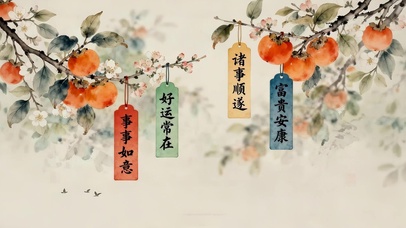 事事如意
好运常在
诸事顺遂
富貴安康